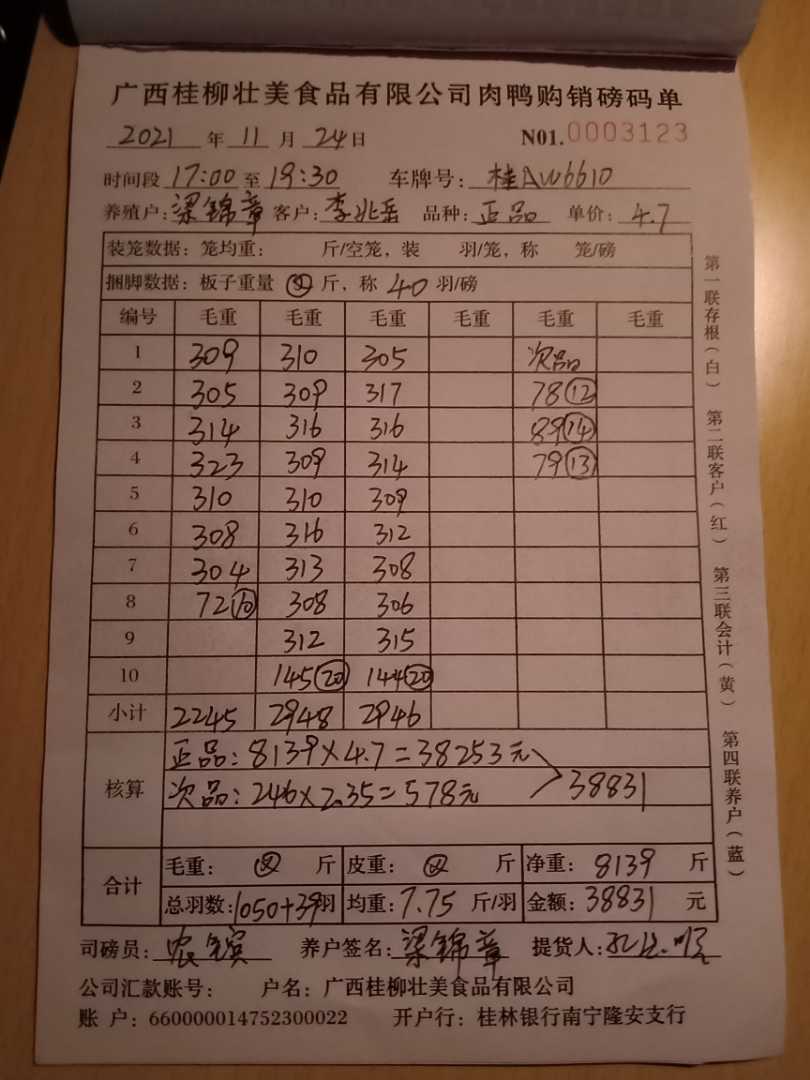 广西桂柳壮美食品有限公司肉鸭购销磅码单
2021 年 11 月 24 日 N01.0003123
时间段 17:00 至 19:30 车牌号: 桂AW6610
养殖户: 梁锦章 客户: 李兆岳 品种: 正品 单价: 4.7
装笼数据: 笼均重: 斤/空笼, 装 羽/笼, 称 笼/磅
捆脚数据: 板子重量 斤, 称 40 羽/磅
编号 毛重 毛重 毛重 毛重 毛重 毛重
1 309 310 305 次品
2 305 309 317 78⑫
3 314 316 316 89⑭
4 323 309 314 79⑬
5 310 310 309
6 308 316 312
7 304 313 308
8 72⑩ 308 306
9 312 315
10 145⑳ 144⑳
小计 2245 2948 2946
核算 正品: 8139×4.7=38253元
次品: 246×2.35=578元 38831
合计 毛重: 斤 皮重: 斤 净重: 8139 斤
总羽数: 1050+39羽 均重: 7.75 斤/羽 金额: 38831 元
司磅员: 农 养户签名: 梁锦章 提货人:
公司汇款账号: 户名: 广西桂柳壮美食品有限公司
账 户: 660000014752300022 开户行: 桂林银行南宁隆安支行
第一联存根(白) 第二联客户(红) 第三联会计(黄) 第四联养户(蓝)